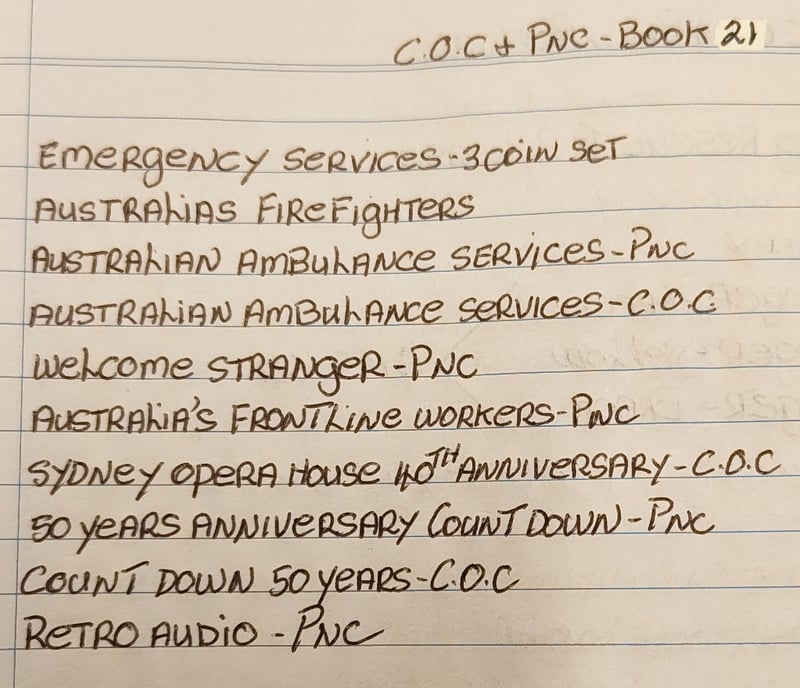 C.O.C + PNC - BOOK 21
EMERGENCY SERVICES - 3 COIN SET
AUSTRALIAS FIREFIGHTERS
AUSTRALIAN AMBULANCE SERVICES - PNC
AUSTRALIAN AMBULANCE SERVICES - C.O.C
WELCOME STRANGER - PNC
AUSTRALIA'S FRONTLINE WORKERS - PNC
SYDNEY OPERA HOUSE 40TH ANNIVERSARY - C.O.C
50 YEARS ANNIVERSARY COUNT DOWN - PNC
COUNT DOWN 50 YEARS - C.O.C
RETRO AUDIO - PNC